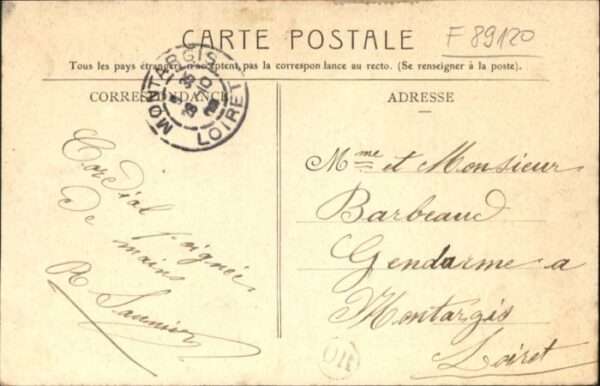 F 89120
CARTE POSTALE
Tous les pays étrangers n'acceptent pas la correspondance au recto. (Se renseigner à la poste).
CORRESPONDANCE
ADRESSE
MONTARGIS
LOIRET
Cordial poignée
de mains
R Saunier
Mme et Monsieur
Barbeaud
Gendarme a
Montargis
Loiret